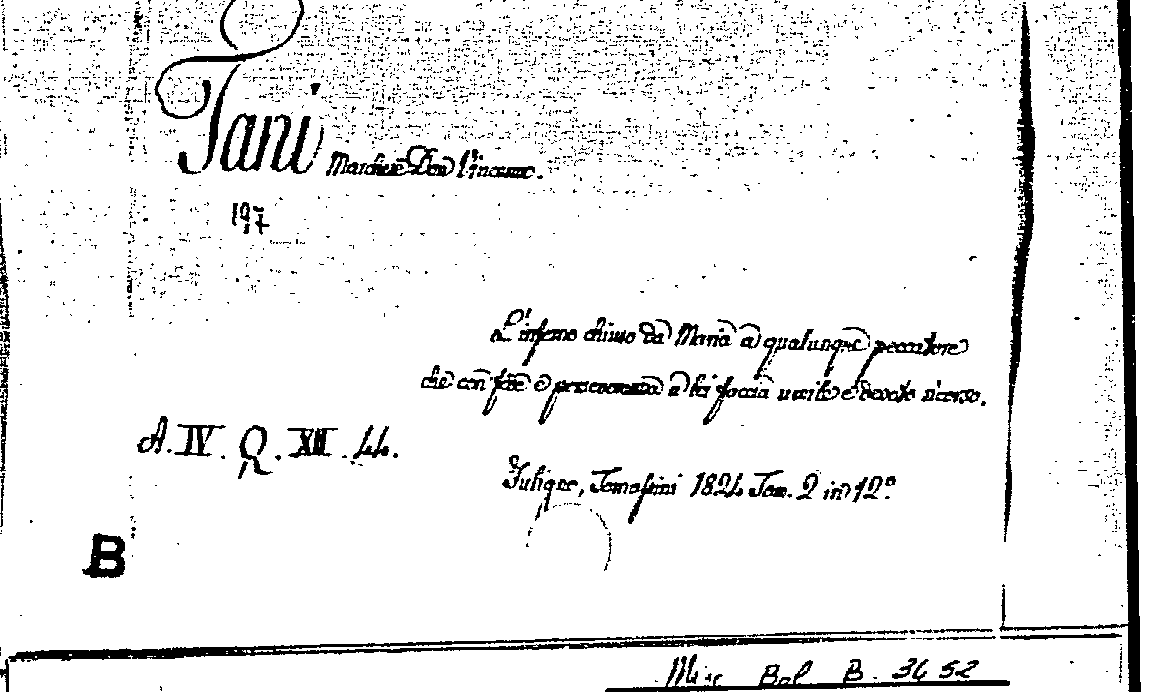 Tani Marchese Don Vincenzo.
197
L'inferno chiuso da Maria a qualunque peccatore
che con fede e perseveranza a lei faccia umile e devoto ricorso.
A. IV. Q. XII. 44.
Fuligno, Tomassini 1824 Tom. 2 in 12º
B
Misc Bol B. 3652